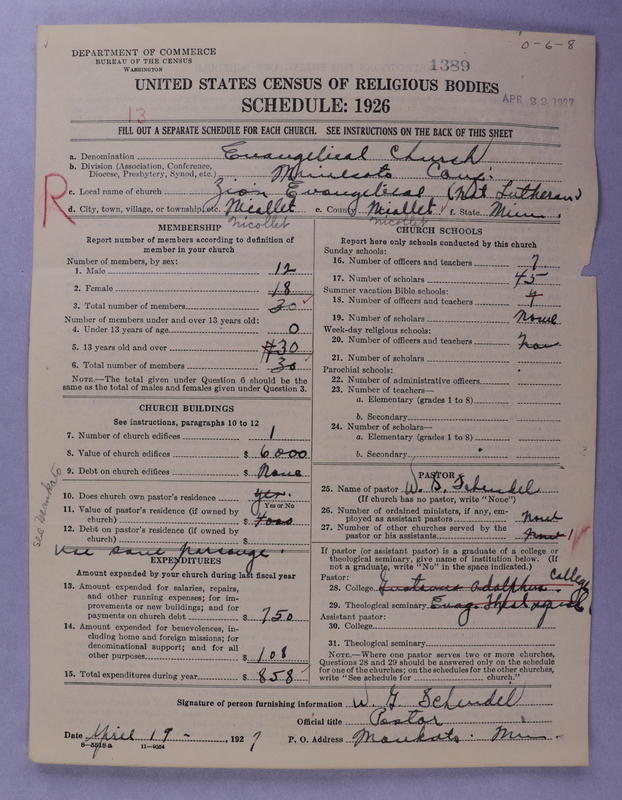 0-6-8
DEPARTMENT OF COMMERCE
BUREAU OF THE CENSUS
WASHINGTON
1389
UNITED STATES CENSUS OF RELIGIOUS BODIES
SCHEDULE: 1926
APR 22 1927
13
FILL OUT A SEPARATE SCHEDULE FOR EACH CHURCH. SEE INSTRUCTIONS ON THE BACK OF THIS SHEET
a. Denomination Evangelical Church
b. Division (Association, Conference, Diocese, Presbytery, Synod, etc.) Minnesota Conf.
R
c. Local name of church Zion Evangelical (Not Lutheran)
d. City, town, village, or township, etc. Nicollet e. County Nicollet f. State Minn.
Nicollet Nicollet
MEMBERSHIP
Report number of members according to definition of
member in your church
Number of members, by sex:
1. Male 12
2. Female 18
3. Total number of members 30
Number of members under and over 13 years old:
4. Under 13 years of age 0
5. 13 years old and over 30
6. Total number of members 30
NOTE.—The total given under Question 6 should be the
same as the total of males and females given under Question 3.
CHURCH BUILDINGS
See instructions, paragraphs 10 to 12
7. Number of church edifices 1
8. Value of church edifices $ 6000
9. Debt on church edifices $ None
10. Does church own pastor's residence yes.
Yes or No
11. Value of pastor's residence (if owned by
church) $ 4000
12. Debt on pastor's residence (if owned by
church) $
see Mankato
use same parsonage.
EXPENDITURES
Amount expended by your church during last fiscal year
13. Amount expended for salaries, repairs,
and other running expenses; for im-
provements or new buildings; and for
payments on church debt $ 750
14. Amount expended for benevolences, in-
cluding home and foreign missions; for
denominational support; and for all
other purposes $ 108
15. Total expenditures during year $ 858
CHURCH SCHOOLS
Report here only schools conducted by this church
Sunday schools:
16. Number of officers and teachers 7
17. Number of scholars 45
Summer vacation Bible schools:
18. Number of officers and teachers
19. Number of scholars None
Week-day religious schools:
20. Number of officers and teachers None
21. Number of scholars
Parochial schools:
22. Number of administrative officers
23. Number of teachers—
a. Elementary (grades 1 to 8)
b. Secondary
24. Number of scholars—
a. Elementary (grades 1 to 8)
b. Secondary
PASTOR
25. Name of pastor W. G. Schendel
(If church has no pastor, write "None")
26. Number of ordained ministers, if any, em-
ployed as assistant pastors None
27. Number of other churches served by the
pastor or his assistants None 1
If pastor (or assistant pastor) is a graduate of a college or
theological seminary, give name of institution below. (If
not a graduate, write "No" in the space indicated.)
Pastor:
28. College Gustavus Adolphus College
29. Theological seminary Evang. Theological
Assistant pastor:
30. College
31. Theological seminary
NOTE.—Where one pastor serves two or more churches,
Questions 28 and 29 should be answered only on the schedule
for one of the churches; on the schedules for the other churches,
write "See schedule for church."
Signature of person furnishing information W. G. Schendel
Official title Pastor
Date April 19 - , 1927 P. O. Address Mankato. Minn.
8—5518a 11—9054